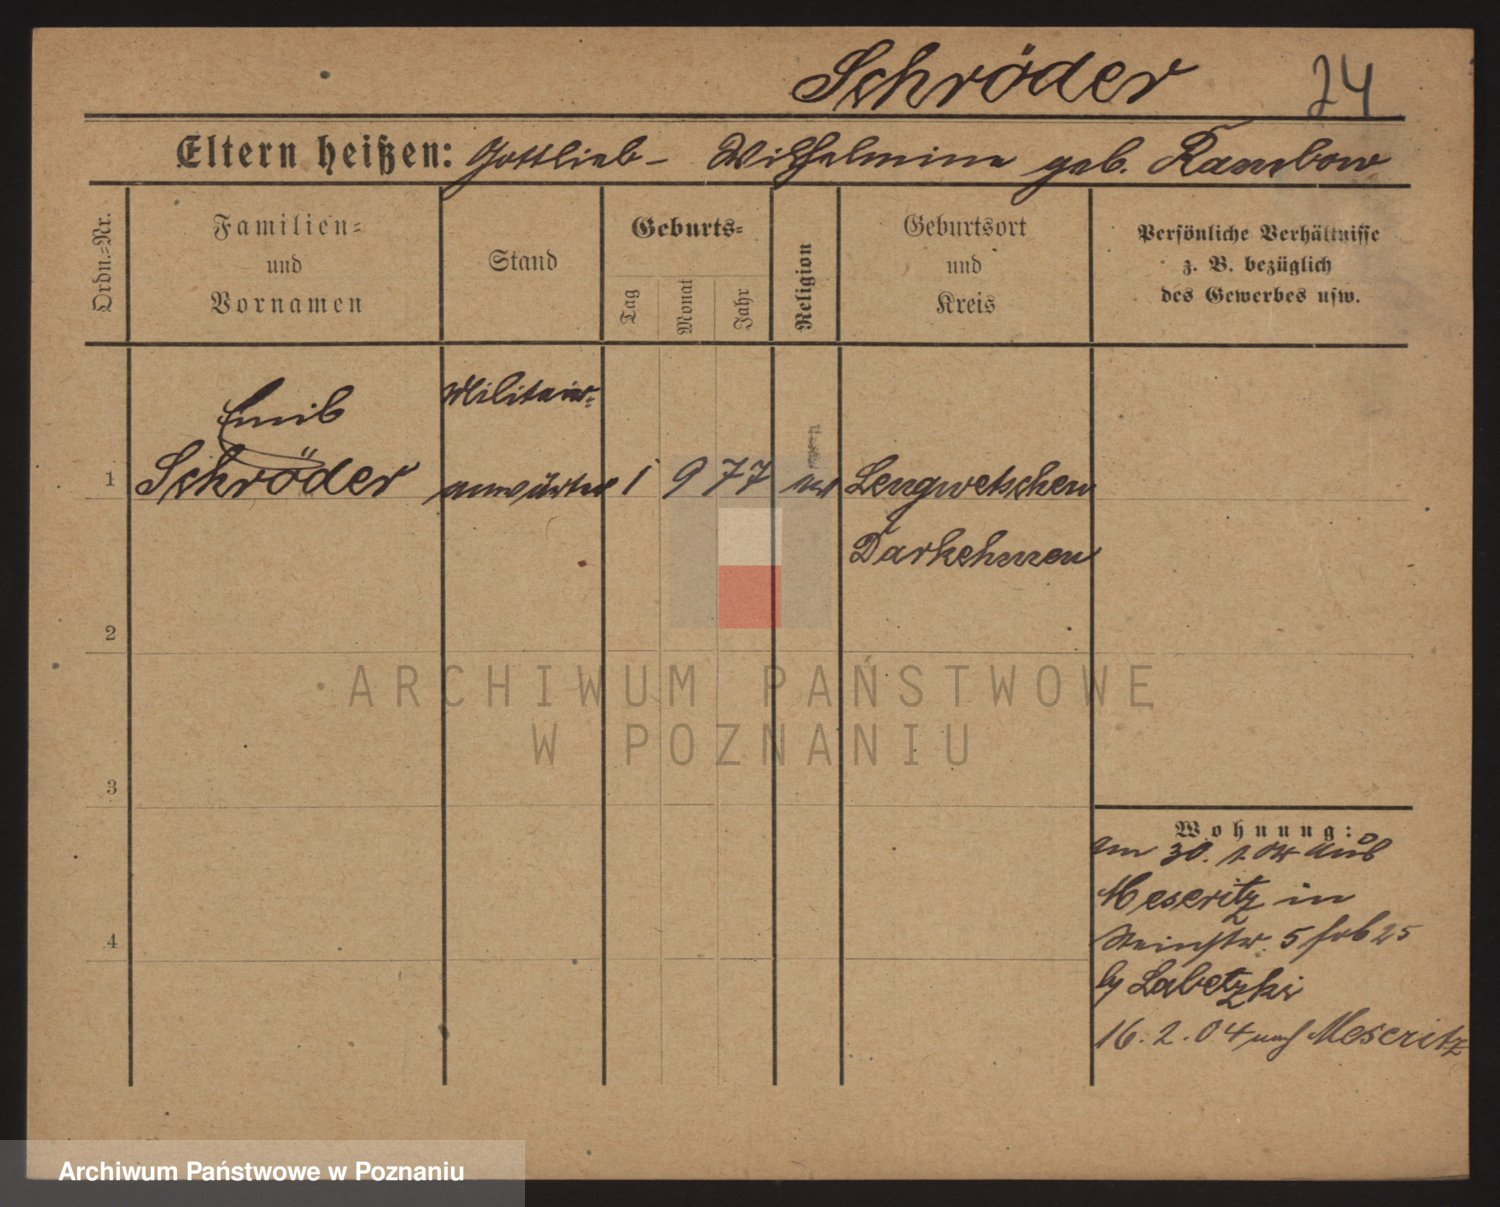 Schröder 24
Eltern heißen: Gottlieb - Wilhelmine geb. Rambow
Ordn.-Nr.
Familien-
und
Vornamen
Stand
Geburts-
Tag
Monat
Jahr
Religion
Geburtsort
und
Kreis
Persönliche Verhältnisse
z. B. bezüglich
des Gewerbes usw.
Emil
Militair-
1 Schröder anwärter 1 9 77 Lengwetschen
Darkehmen
2
3
4
Wohnung:
am 30. 1. 04 aus
Meseritz in
5
Labetzki
16. 2. 04 nach Meseritz
ARCHIWUM PAŃSTWOWE
W POZNANIU
Archiwum Państwowe w Poznaniu